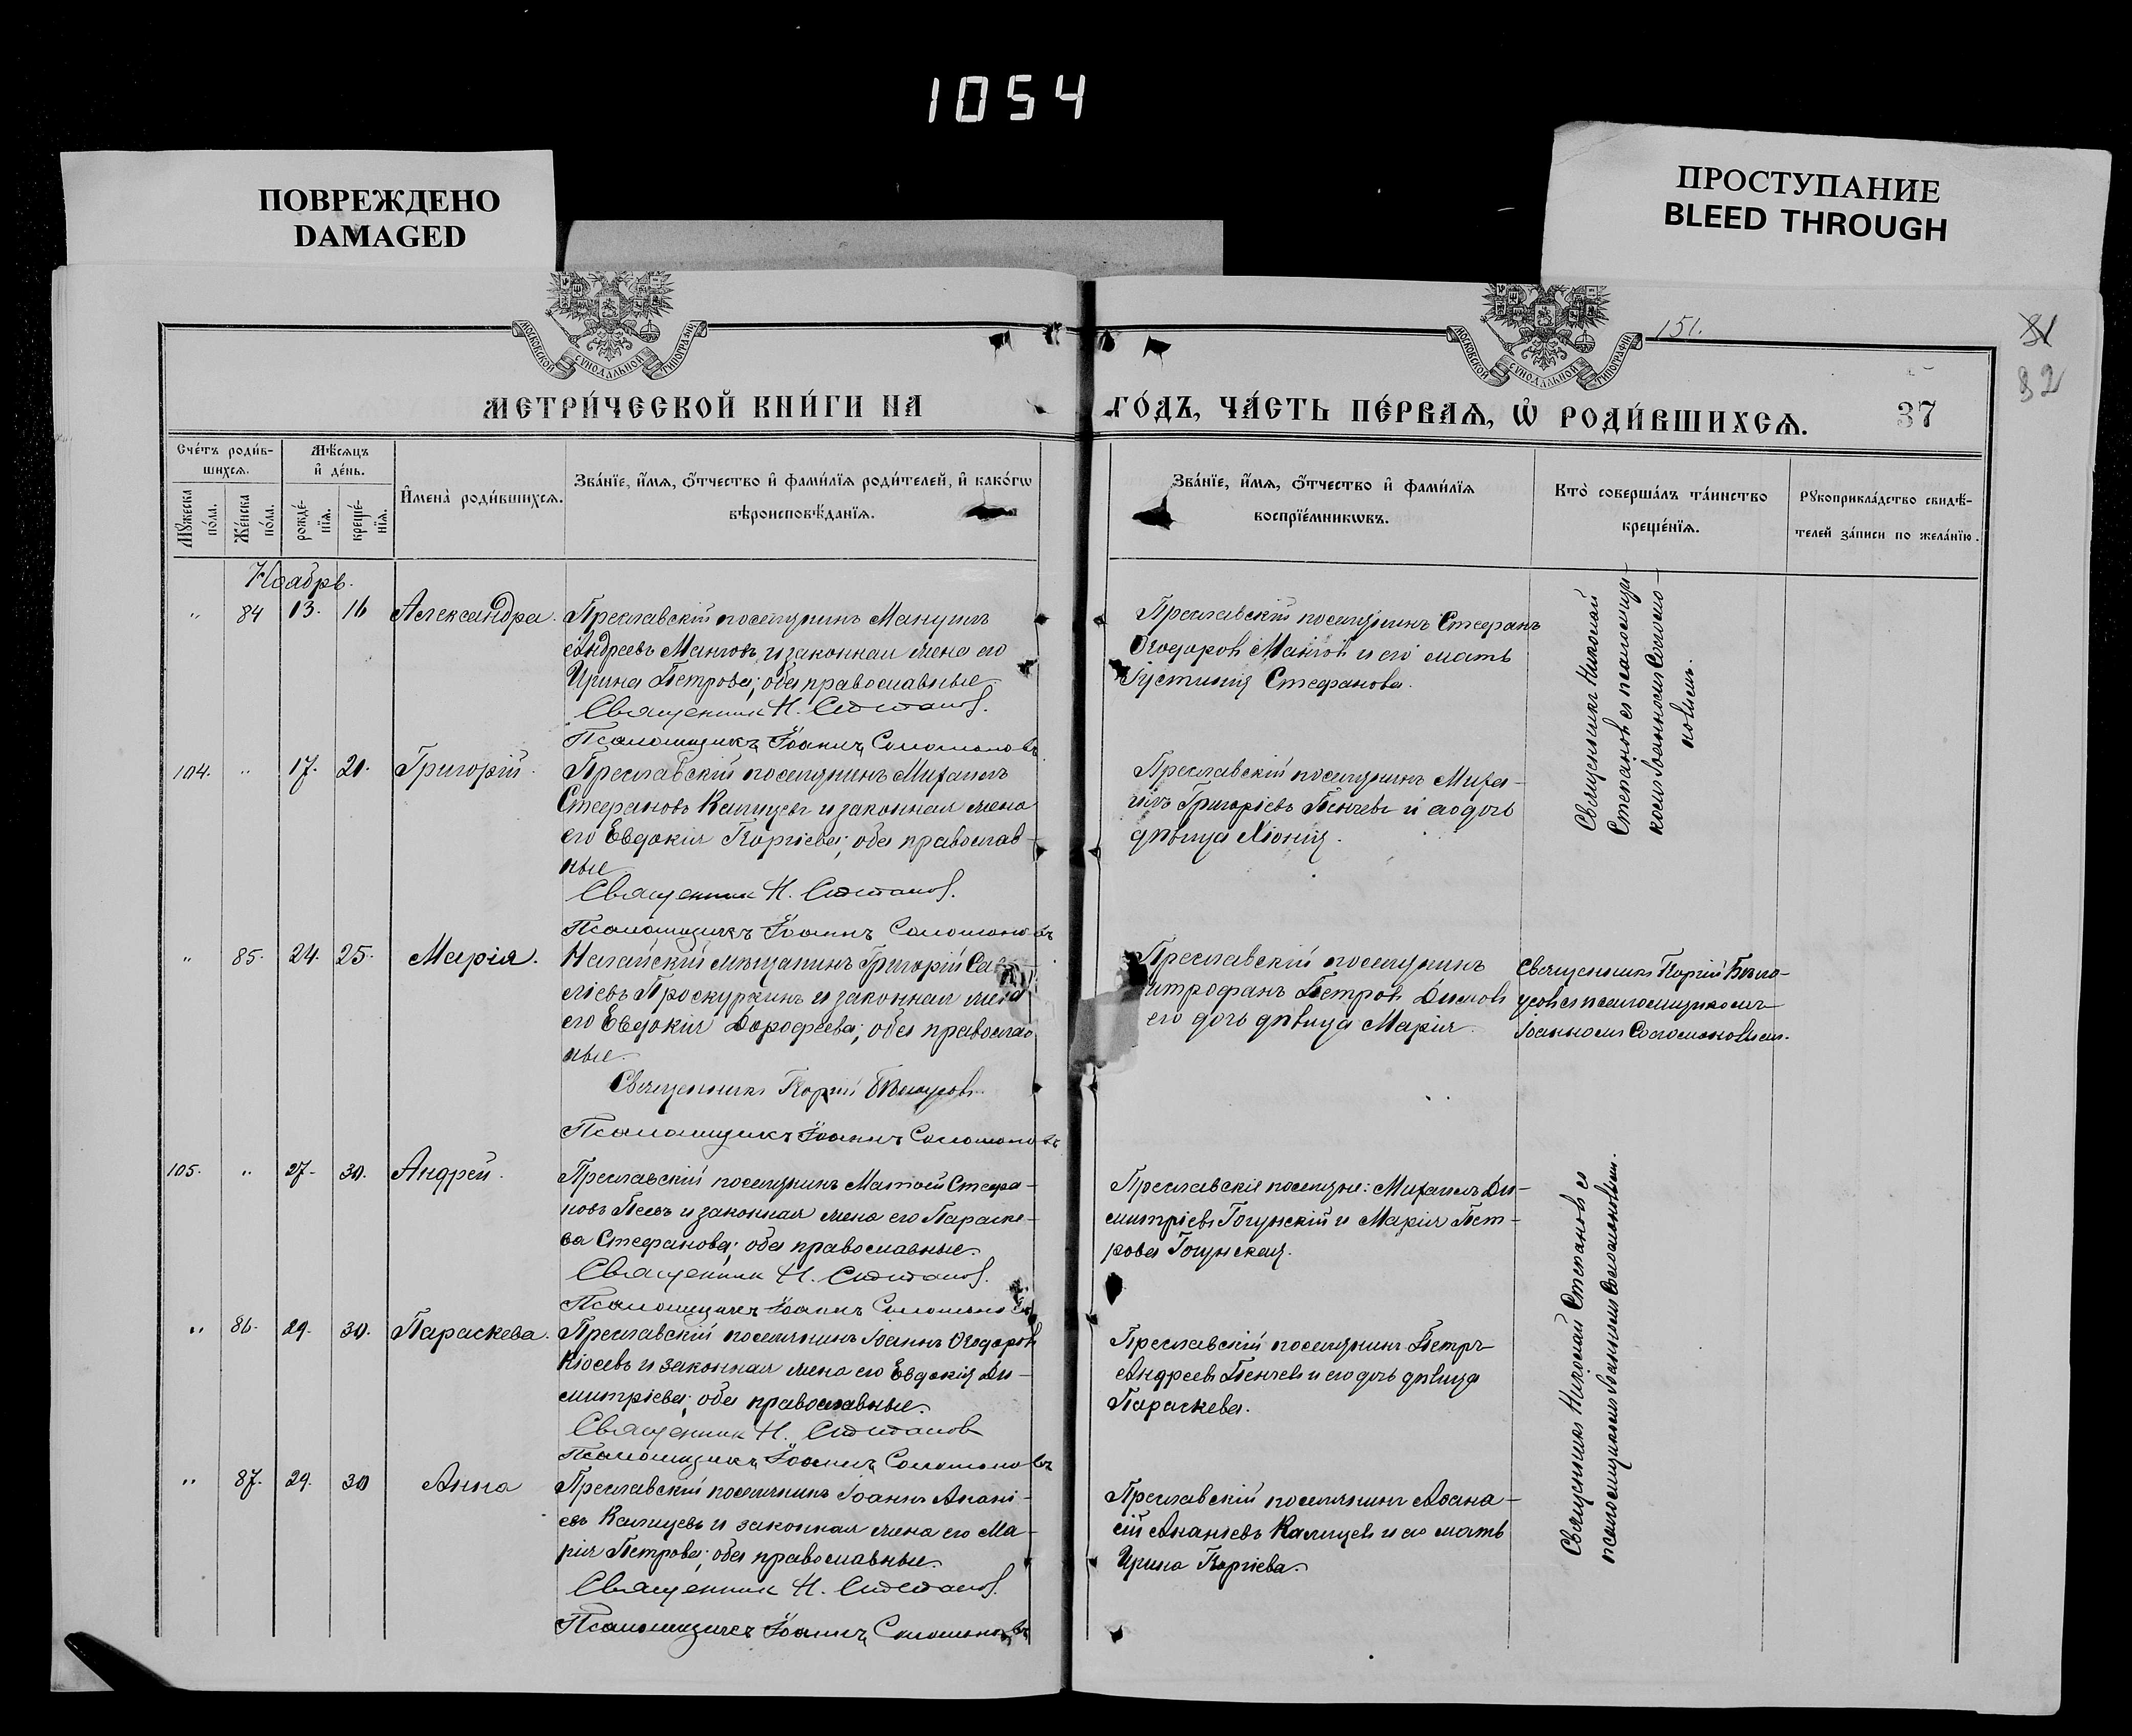 1054
ПОВРЕЖДЕНО
DAMAGED
ПРОСТУПАНИЕ
BLEED THROUGH
МОСКОВСКОЙ СѴНОДАЛЬНОЙ ТИПОГРАФІИ
МОСКОВСКОЙ СѴНОДАЛЬНОЙ ТИПОГРАФІИ
151.
81
82
МЕТРИ́ЧЕСКОЙ КНИ́ГИ НА
ГО́ДЪ, ЧА́СТЬ ПЕ́РВАѦ, Ѡ҆ РОДИ́ВШИХСѦ.
37
Сче́тъ роди́в-
шихсѧ.
Мѣ́сѧцъ
и҆ де́нь.
Мꙋ́жеска
по́ла.
Же́нска
по́ла.
рожде́-
нїѧ.
креще́-
нїѧ.
И҆мена̀ роди́вшихсѧ.
Зва́нїе, и҆́мѧ, ѻ҆́тчество и҆ фами́лїѧ роди́телей, и҆ како́гѡ
вѣроисповѣ́данїѧ.
Зва́нїе, и҆́мѧ, ѻ҆́тчество и҆ фами́лїѧ
воспрїе́мникѡвъ.
Кто̀ соверша́лъ та́инство
креще́нїѧ.
Рꙋкоприкла́дство свидѣ́-
телей за́писи по жела́нїю.
Ноабрь.
" 84 13. 16 Александра.
Преславскій поселянинъ Мануилъ
Андреевъ Манговъ и законная жена его
Ирина Петрова; оба православные.
Священникъ Н. Степановъ.
Псаломщикъ Іоаннъ Соломоновъ
Преславскій поселянинъ Стефанъ
Ѳеодоровъ Манговъ и его мать
Іустинія Стефанова.
Священникъ Николай
Степановъ съ псаломщи-
комъ Іоанномъ Соломо-
новымъ.
104. " 17. 21. Григорій.
Преславскій поселянинъ Михаилъ
Стефановъ Калицевъ и законная жена
его Евдокія Георгіева; оба православ-
ные.
Священникъ Н. Степановъ.
Псаломщикъ Іоаннъ Соломоновъ
Преславскій поселянинъ Миха-
илъ Григоріевъ Пенчевъ и его дочь
дѣвица Хіонія.
" 85. 24. 25. Марія.
Ногайскій мѣщанинъ Григорій Сав
еліевъ Проскуринъ и законная жена
его Евдокія Дорофеева; оба православ
ные.
Священникъ Георгій Бѣлоусовъ.
Псаломщикъ Іоаннъ Соломоновъ
Преславскій поселянинъ
итрофанъ Петровъ Димовъ
его дочь дѣвица Марія.
Священникъ Георгій Бѣло-
усовъ съ псаломщикомъ
Іоанномъ Соломоновымъ.
105. " 27. 30. Андрей.
Преславскій поселянинъ Матѳей Стефа-
новъ Пеевъ и законная жена его Параске-
ва Стефанова; оба православные.
Священникъ Н. Степановъ.
Псаломщикъ Іоаннъ Соломоновъ
Преславскіе поселяне: Михаилъ Ди-
митріевъ Гогунскій и Марія Пет-
рова Гогунская.
Священникъ Николай Степановъ съ
псаломщикомъ Іоанномъ Соломоновымъ.
" 86. 29. 30. Параскева.
Преславскій поселянинъ Іоаннъ Ѳеодоровъ
Кіосевъ и законная жена его Евдокія Ди-
митріева; оба православные.
Священникъ Н. Степановъ
Псаломщикъ Іоаннъ Соломоновъ
Преславскій поселянинъ Петръ
Андреевъ Пенчевъ и его дочь дѣвица
Параскева.
" 87. 29. 30 Анна
Преславскій поселянинъ Іоаннъ Анані-
евъ Калицевъ и законная жена его Ма-
рія Петрова; оба православные.
Священникъ Н. Степановъ.
Псаломщикъ Іоаннъ Соломоновъ
Преславскій поселянинъ Аѳана-
сій Ананіевъ Калицевъ и его мать
Ирина Георгіева.